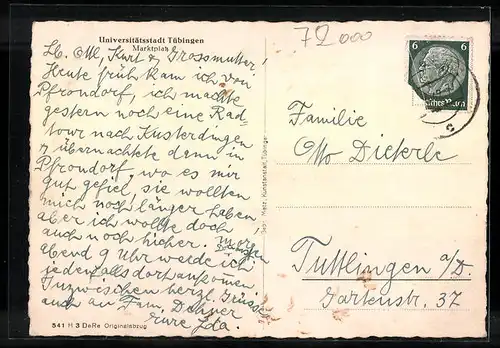 Universitätsstadt Tübingen
Marktplatz
72000
Lb. Ott, Kurt & Grossmutter!
Heute früh kam ich von
Pfrondorf, ich machte
gestern noch eine Rad-
tour nach Kusterdingen
& übernachtete dann in
Pfrondorf, wo es mir
gut gefiel, sie wollten
mich noch länger haben
aber ich wollte doch
auch noch hieher. Morgen
abend 9 Uhr werde ich
jedenfalls dort ankommen.
Inzwischen herzl. Grüsse
auch an Fam.
eure Ida.
541 H 3 DeRe Originalabzug
Gebr. Metz, Kunstanstalt, Tübingen
6 6
Familie
Otto Dieterle
Tuttlingen a/D.
Gartenstr. 37